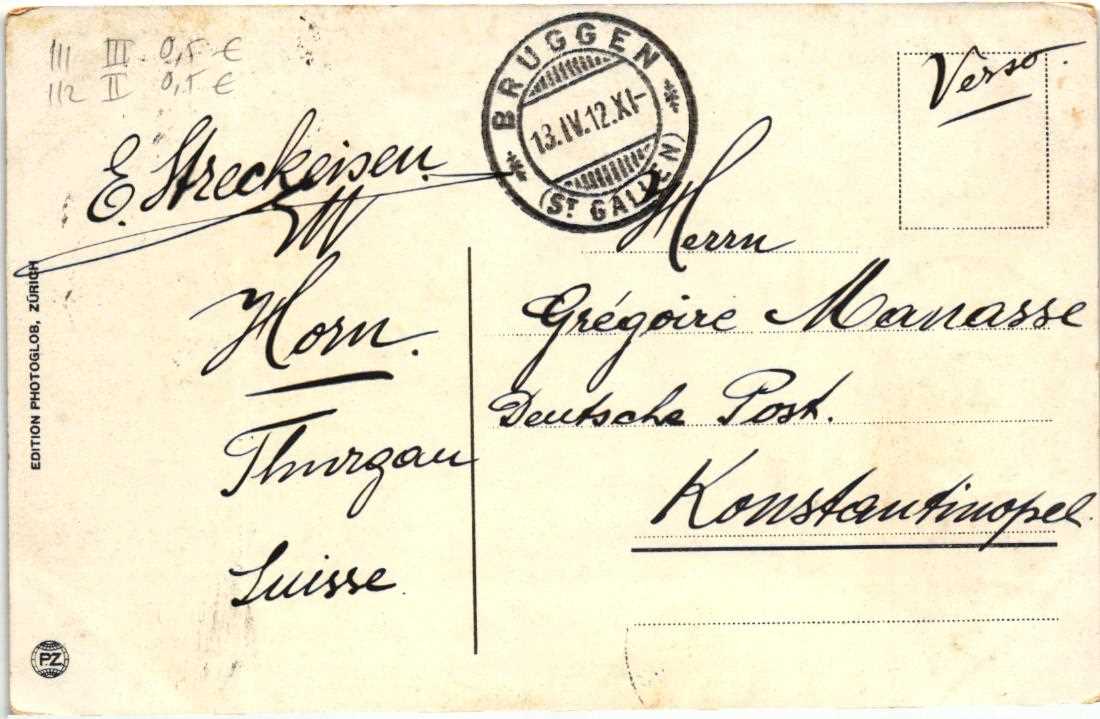 111 III 0,5 €
112 II 0,5 €
BRUGGEN
13.IV.12.XI-
(ST GALLEN)
Verso.
E. Streckeisen.
Horn.
Thurgau
Suisse
Herrn
Grégoire Manasse
Deutsche Post.
Konstantinopel.
EDITION PHOTOGLOB, ZÜRICH
P.Z.